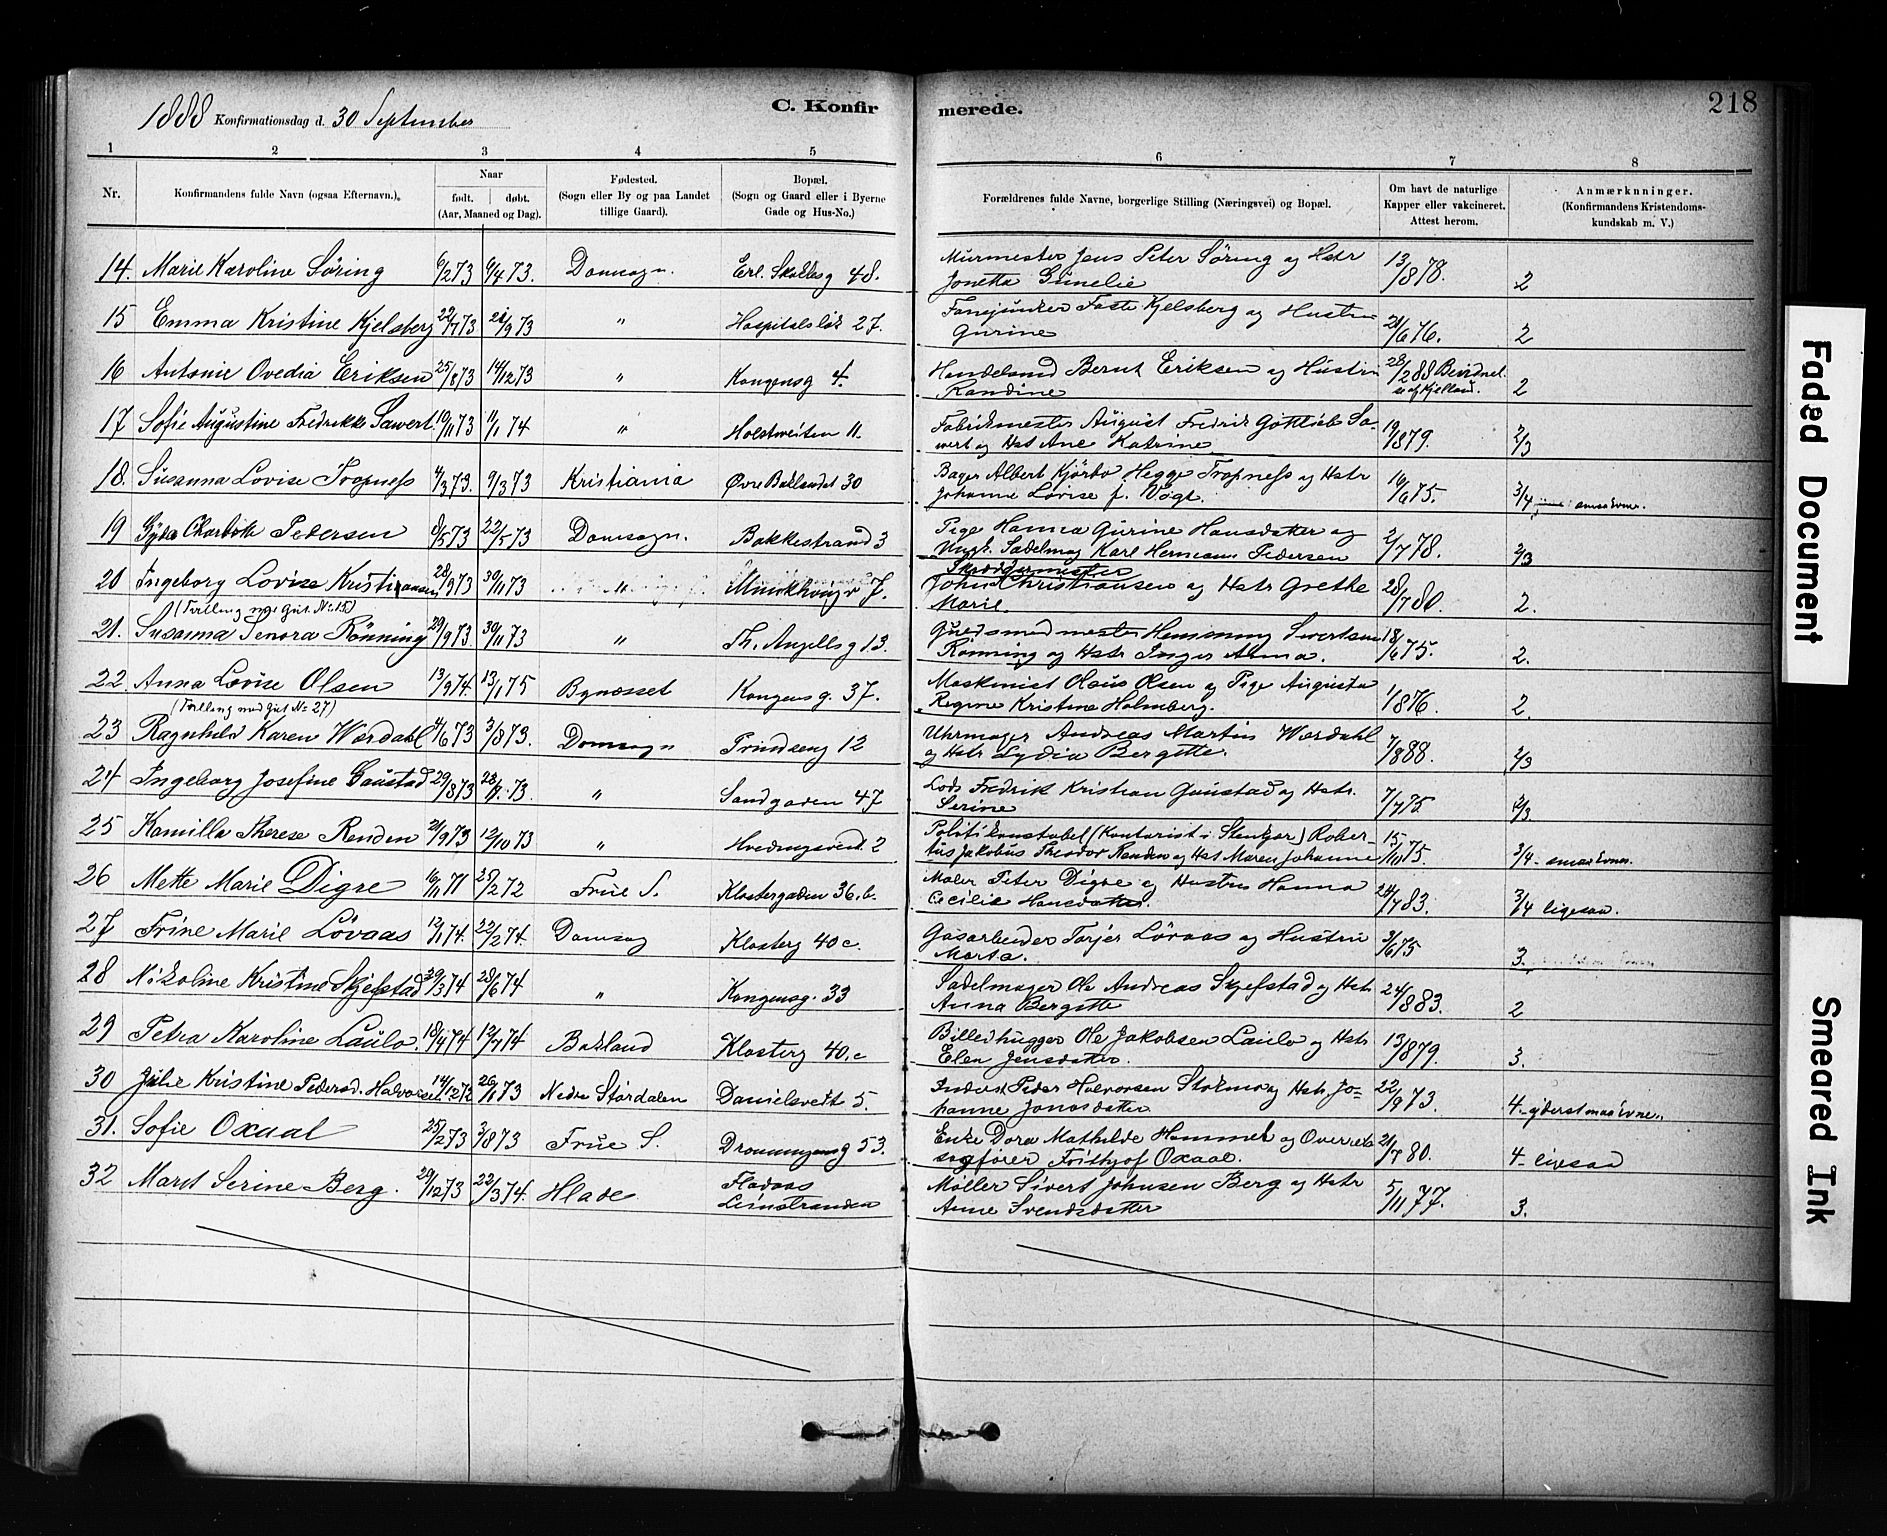 1888 Konfirmationsdag d. 30 September
C. Konfir
merede.
218
1
2
3
4
5
6
7
8
Nr.
Konfirmandens fulde Navn (ogsaa Efternavn.).
Naar
født. døbt.
(Aar, Maaned og Dag).
Fødested.
(Sogn eller By og paa Landet
tillige Gaard).
Bopæl.
(Sogn og Gaard eller i Byerne
Gade og Hus-No.)
Forældrenes fulde Navne, borgerlige Stilling (Næringsvei) og Bopæl.
Om havt de naturlige
Kapper eller vakcineret.
Attest herom.
Anmærknninger.
(Konfirmandens Kristendoms-
kundskab m. V.)
14. Marie Karoline Söring 6/2 73 6/4 73. Domsogn. Erl. Skakkesg 48. Murmester Jens Peter Söring og Hstr
Jonetta Gunelie 13/8 78. 2
15 Emma Kristine Kjelsberg 22/7 73 21/9 73 " Hospitalslök 27. Fanejunker Faste Kjelsberg og Hustru
Gurine 21/6 76. 2
16 Antonie Ovedia Eriksen 25/8 73 14/12 73 " Kongensg 4. Handelsmd Bernt Eriksen og Hustru
Randine 28/2 88 2
17 Sofie Augustine Fredrikke Sawert. 10/11 73 11/1 74 " Holstveiten 11. Fabrikmester August Fredrik Gottlieb Sa-
wert og Hst Ane Katrine 19/8 79. 2/3
18. Susanna Lovise Tropness 4/3 73. 9/3 73 Kristiania Øvre Baklandet 30 Bager Albert Kjörbo Hegge Tropness og Hstr
Johanne Lovise f. Vogt. 16/6 75. 3/4
19 Gyda Charlotte Pedersen 8/5 73 22/5 73 Domsogn. Bakkestrand 3 Pige Hanna Gurine Hansdatter og
Ungk. Sadelmag Karl Hermann Pedersen 2/7 78. 2/3
20 Ingeborg Lovise Kristiansen 28/9 73 30/11 73 " Munkhaugv 7. Skræddermester
John Christiansen og Hstr Grethe
Marie. 28/7 80. 2.
(Tvilling med Gut No 15)
21. Susanna Senora Rönning 29/9 73. 30/11 73 " Th. Angellsg 13. Guldsmedmester Hemming Sivertsen
Rönning og Hstr Inger Anna. 18/6 75. 2.
22 Anna Lovise Olsen 13/9 74. 13/1 75 Bynæsset Kongensg. 37. Maskinist Olaus Olsen og Pige Augusta
Regine Kristine Holmberg. 1/8 76. 2.
(Tvilling med Gut No 27)
23 Ragnhild Karen Wærdahl 4/6 73 3/8 73. Domsogn Trindseng 12 Uhrmager Andreas Martin Wærdahl
og Hstr Lydia Bergitte. 7/8 88. 2/3
24 Ingeborg Josefine Gaustad 29/8 73 28/9 73. " Sandgaden 47 Lods Fredrik Kristian Gaustad og Hstr.
Serine 7/7 75. 2/3
25 Kamilla Therese Renden 21/9 73 12/10 73 " Hvedingsveit. 2 Politikonstabel (Kontorist i Stenkjær) Rober-
tus Jakobus Theodor Renden og Hst Maren Johanne 15/10 75. 3/4 - smaa Evner.
26 Mette Marie Digre 16/11 71 25/2 72 Frue S. Klostergaden 36.b. Maler Peter Digre og Hustru Hanna
Cecilie Hansdatter. 24/7 83. 3/4 ligesaa.
27 Trine Marie Lövaas 12/1 74. 22/2 74. Domsog Klosterg 40 c. Gasarbeider Torjer Lövaas og Hustru
Marta. 3/6 75 3.
28 Nikoline Kristine Skjefstad 29/3 74 28/6 74 " Kongensg. 33 Sadelmager Ole Andreas Skjefstad og Hstr
Anna Bergitte 24/8 83. 2
29 Petra Karoline Laulo. 18/4 74 12/7 74 Bakland Klosterg 40.c Billedhugger Ole Jakobsen Laulo og Hstr
Elen Jensdatter. 13/8 79. 3.
30 Julie Kristine Pedersd. Halvorsen 14/12 72 26/1 73 Nedre Stördalen Danielsveit 5. Inderst Peder Halvorsen Stokmo og Hstr. Jo=
hanne Jonasdatter 22/9 73. 4 - yderst smaa Evne.
31. Sofie Oxaal 25/2 73 3/8 73 Frue S. Dronningensg 53. Enke Dora Mathilde Hammel og Overrets
sagförer Frithjof Oxaal. 21/7 80. 4 - ligesaa
32 Maret Serine Berg. 29/12 73 22/3 74. Hlade Fladaas
Leinstranden Møller Sivert Johnsen Berg og Hstr
Anne Svendsdatter 5/11 77. 3.
Faded Document
Smeared Ink